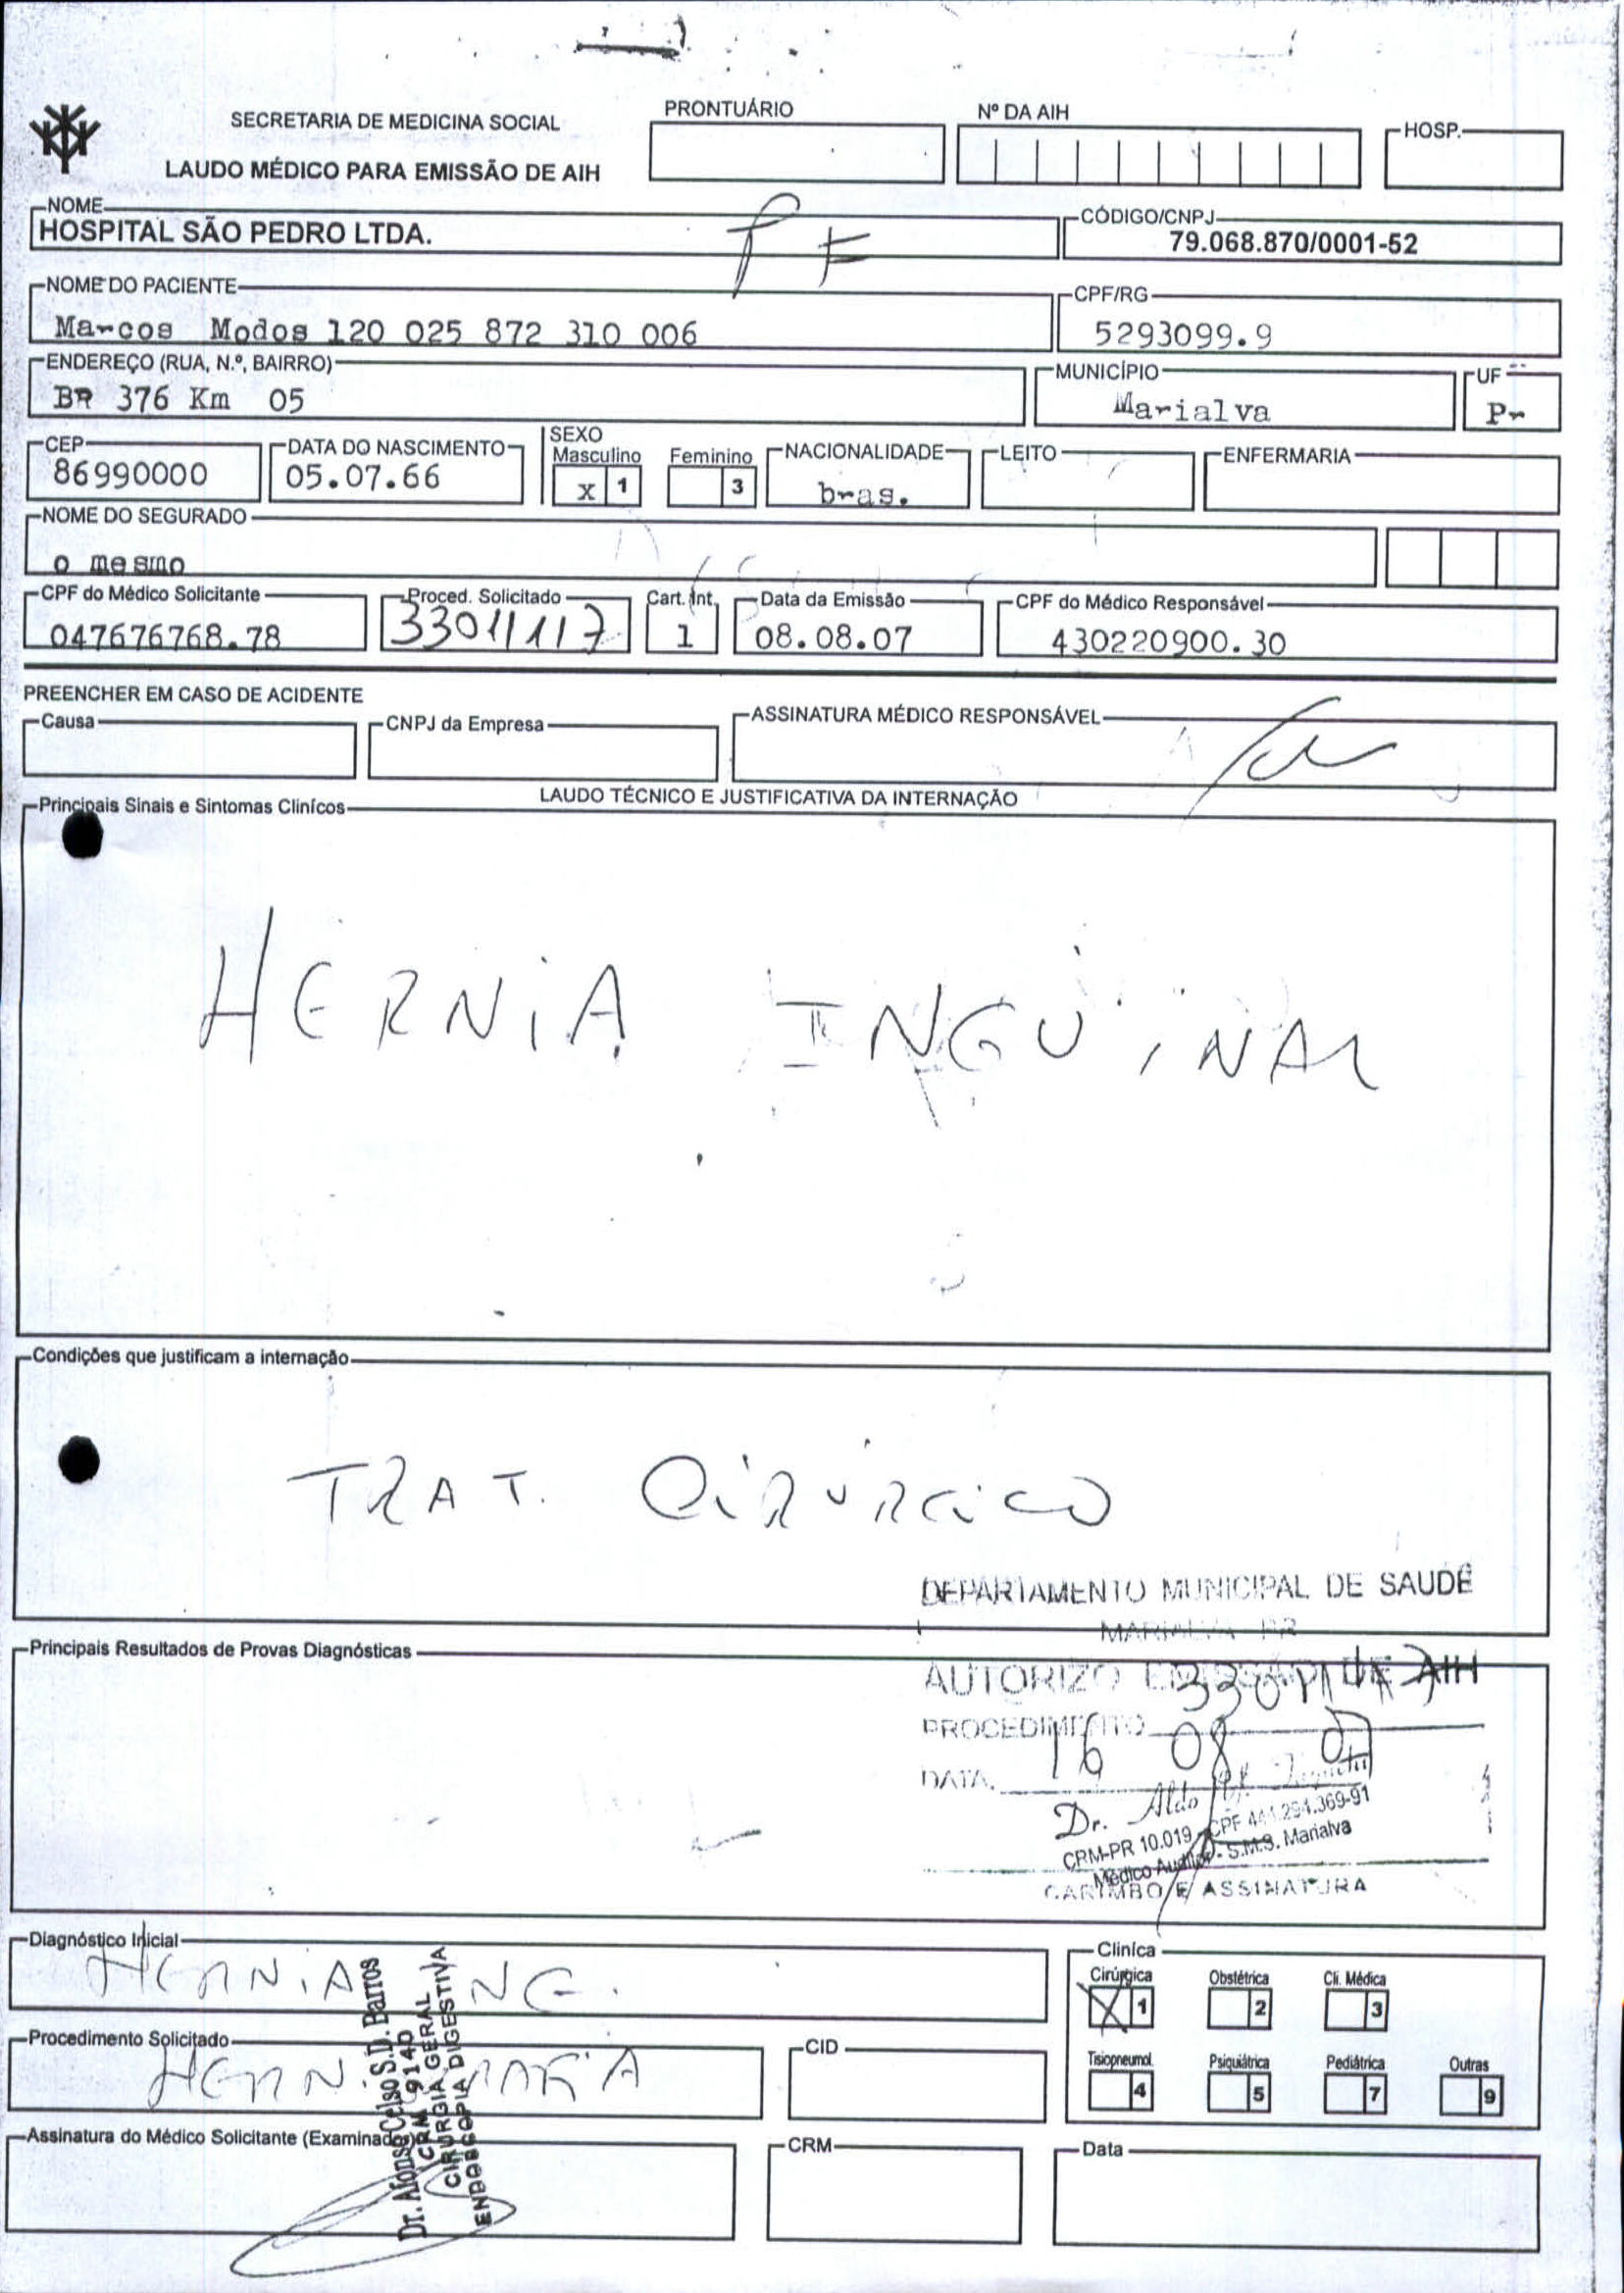 SECRETARIA DE MEDICINA SOCIAL
LAUDO MÉDICO PARA EMISSÃO DE AIH
PRONTUÁRIO
Nº DA AIH
HOSP.
NOME
HOSPITAL SÃO PEDRO LTDA.
CÓDIGO/CNPJ
79.068.870/0001-52
NOME DO PACIENTE
Marcos Modos 120 025 872 310 006
CPF/RG
5293099.9
ENDEREÇO (RUA, N.º, BAIRRO)
BR 376 Km 05
MUNICÍPIO
Marialva
UF
Pr
CEP
86990000
DATA DO NASCIMENTO
05.07.66
SEXO
Masculino
x 1
Feminino
3
NACIONALIDADE
bras.
LEITO
ENFERMARIA
NOME DO SEGURADO
o mesmo
CPF do Médico Solicitante
047676768.78
Proced. Solicitado
33011117
Cart. Int.
1
Data da Emissão
08.08.07
CPF do Médico Responsável
430220900.30
PREENCHER EM CASO DE ACIDENTE
Causa
CNPJ da Empresa
ASSINATURA MÉDICO RESPONSÁVEL
LAUDO TÉCNICO E JUSTIFICATIVA DA INTERNAÇÃO
Principais Sinais e Sintomas Clinícos
HERNIA INGUINAL
Condições que justificam a internação
TRAT. CIRURGICO
DEPARTAMENTO MUNICIPAL DE SAUDE
MARIALVA - PR
Principais Resultados de Provas Diagnósticas
AUTORIZO EMISSÃO DE AIH
PROCEDIMENTO
DATA. 16 08 07
Dr. Aldo
CRM-PR 10.019 - CPF 441.294.369-91
Médico Auditor - S.M.S. Marialva
CARIMBO E ASSINATURA
Diagnóstico Inicial
HERNIA ING.
Cliníca
Cirúrgica
X 1
Obstétrica
2
Cli. Médica
3
Tisiopneumol.
4
Psiquiátrica
5
Pediátrica
7
Outras
9
Procedimento Solicitado
CID
Dr. Afonso Celso S.D. Barros
CRM 9140
CIRURGIA GERAL
ENDOSCOPIA DIGESTIVA
Assinatura do Médico Solicitante (Examinador)
CRM
Data